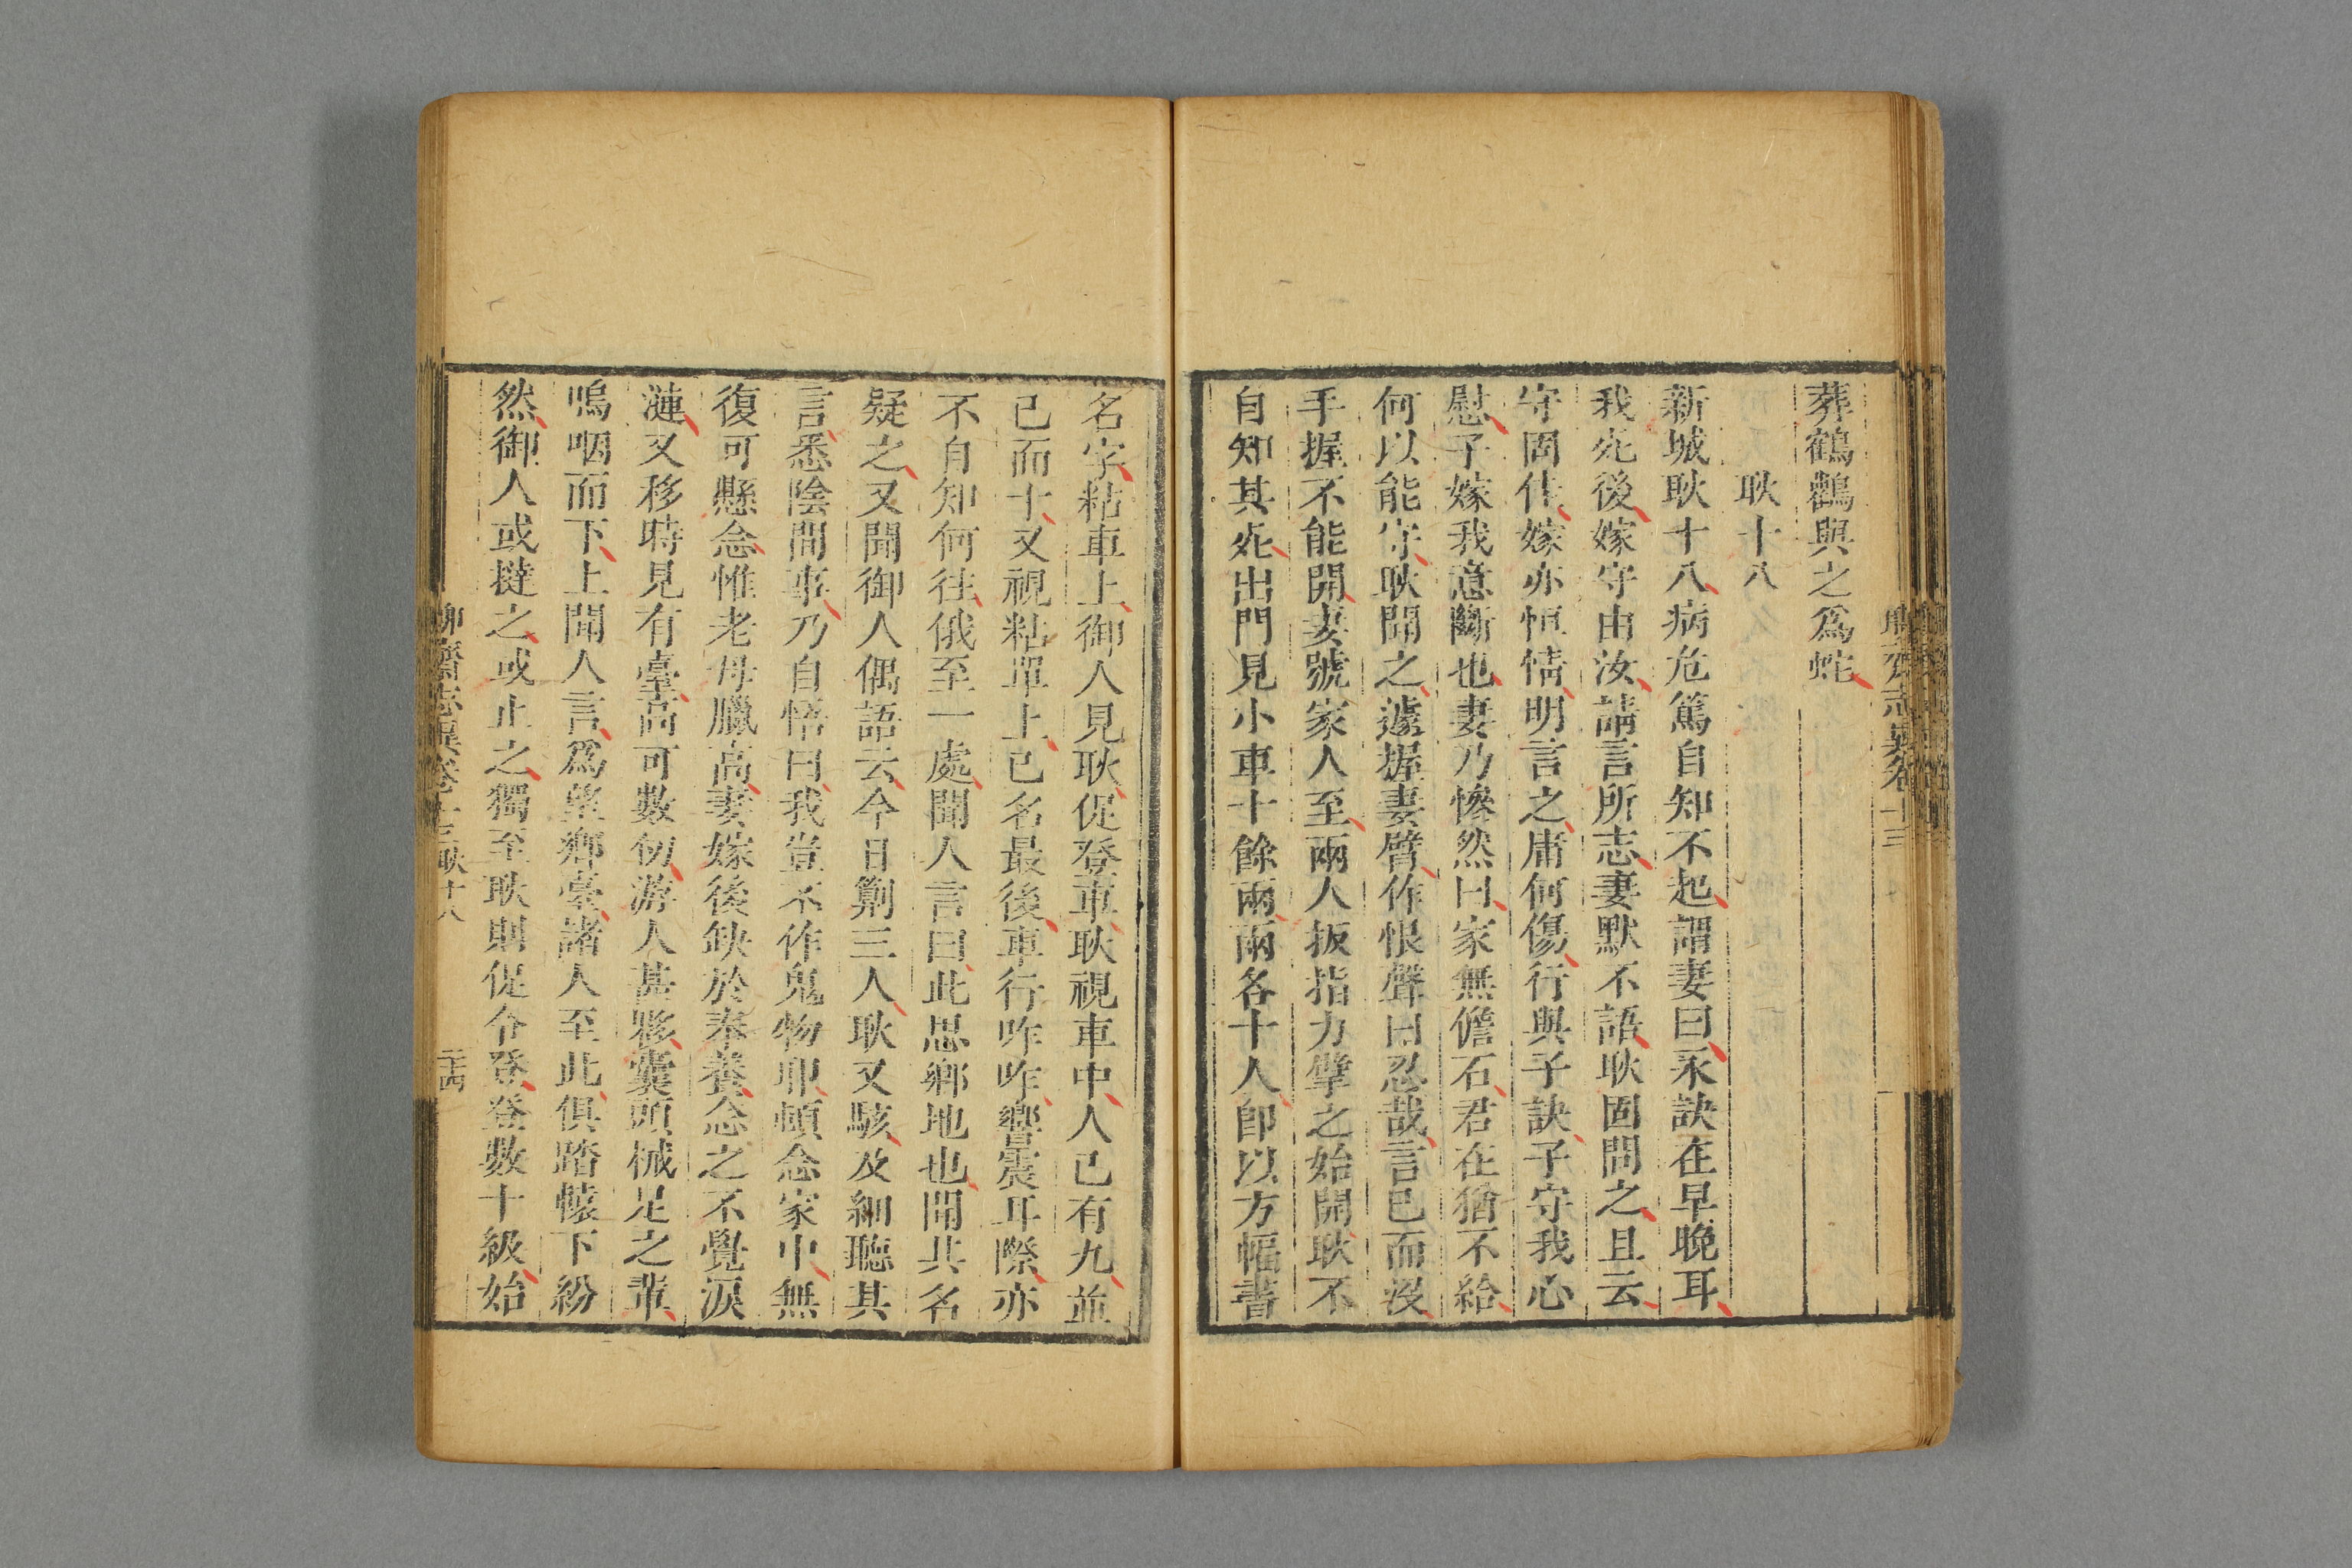 聊齋志異卷十三
葬鶴鸛與之爲蛇
耿十八
新城耿十八病危篤自知不起謂妻曰永訣在早晚耳
我死後嫁守由汝請言所志妻默不語耿固問之且云
守固佳嫁亦恒情明言之庸何傷行與子訣子守我心
慰子嫁我意斷也妻乃慘然曰家無儋石君在猶不給
何以能守耿聞之遽握妻臂作恨聲曰忍哉言已而沒
手握不能開妻號家人至兩人扳指力擘之始開耿不
自知其死出門見小車十餘兩兩各十人卽以方幅書
名字粘車上御人見耿促登車耿視車中人已有九並
已而十又視粘單上已名最後車行咋咋響震耳際亦
不自知何往俄至一處聞人言曰此思鄉地也聞其名
疑之又聞御人偶語云今日劉三人耿又駭及細聽其
言悉陰間事乃自悟曰我豈不作鬼物耶頓念家中無
復可懸念惟老母臘高妻嫁後缺於奉養念之不覺淚
漣又移時見有臺高可數仞游人甚夥囊頭械足之輩
嗚咽而下上聞人言爲望鄉臺諸人至此俱踏轅下紛
然御人或撻之或止之獨至耿則促令登登數十級始
聊齋志異卷十三 耿十八 二十四